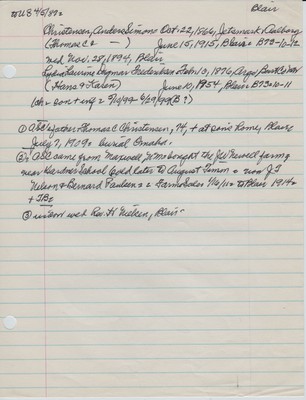 to US 4/5/89= Blair
Christensen, Anders Simons Oct. 22, 1866, Jetsmark, Aalborg
(Thomas C & — ) June 15, 1915, Blair = B72-10-12
wed Nov. 28, 1894, Blair
Lydia Laurine Dagmar Frederiksen Feb 13, 1876, Argo, Burt Co Nebr
(Hans & Karen) June 10, 1954, Blair B73=10-11
1ch = son + eng = 2/10/99 6/29/99 (B?)
① ASC's father Thomas C Christensen, 74, + at sons home, Blair
July 7, 1909 = burial Omaha.
② ASC came from Maxwell, = bought the JW Newell farm
near Gardner School sold later to August Timm = now J T
Nelson & Bernard Paulsen = = farm sale 1/10/11 = to Blair 1914 =
+ TB =
③ wed Rev. H Nielsen, Blair